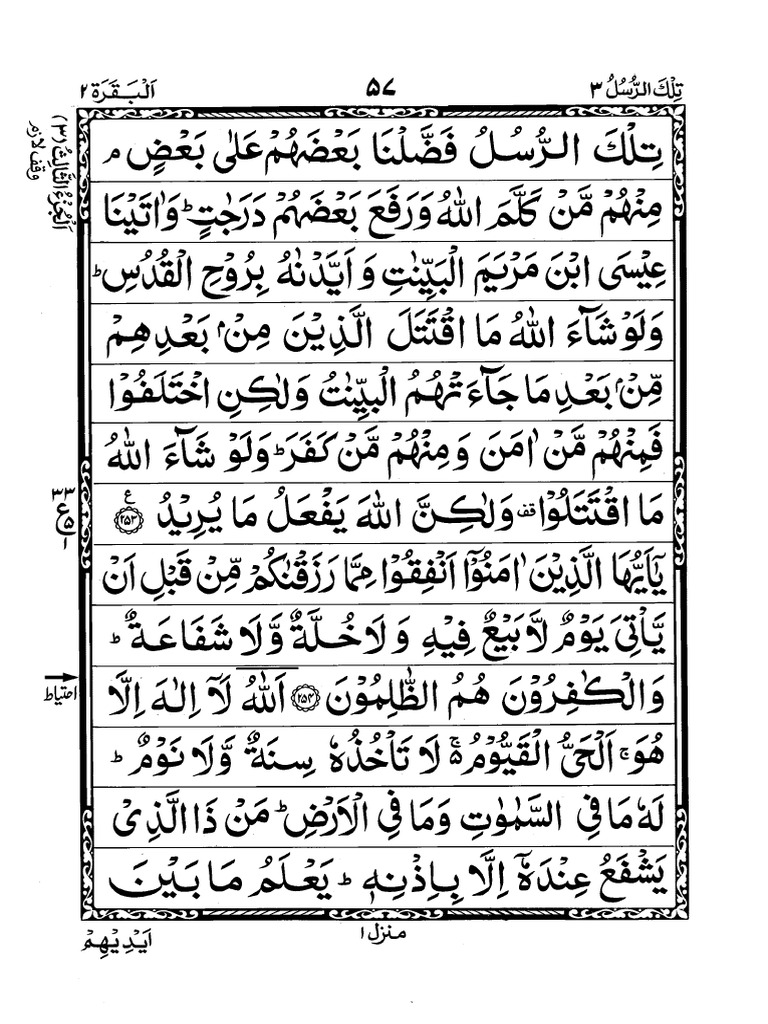 تِلْكَ الرُّسُلُ ٣
٥٧
اَلْبَقَرَة ٢
تِلْكَ الرُّسُلُ فَضَّلْنَا بَعْضَهُمْ عَلٰى بَعْضٍ ۘ
مِنْهُمْ مَّنْ كَلَّمَ اللّٰهُ وَرَفَعَ بَعْضَهُمْ دَرَجٰتٍ ؕ وَاٰتَيْنَا
عِيْسَى ابْنَ مَرْيَمَ الْبَيِّنٰتِ وَاَيَّدْنٰهُ بِرُوْحِ الْقُدُسِ ؕ
وَلَوْ شَآءَ اللّٰهُ مَا اقْتَتَلَ الَّذِيْنَ مِنْۢ بَعْدِهِمْ
مِّنْۢ بَعْدِ مَا جَآءَتْهُمُ الْبَيِّنٰتُ وَلٰكِنِ اخْتَلَفُوْا
فَمِنْهُمْ مَّنْ اٰمَنَ وَمِنْهُمْ مَّنْ كَفَرَ ؕ وَلَوْ شَآءَ اللّٰهُ
مَا اقْتَتَلُوْا ۟ وَلٰكِنَّ اللّٰهَ يَفْعَلُ مَا يُرِيْدُ ﴿۲۵۳﴾ ع
يٰۤاَيُّهَا الَّذِيْنَ اٰمَنُوْۤا اَنْفِقُوْا مِمَّا رَزَقْنٰكُمْ مِّنْ قَبْلِ اَنْ
يَّاْتِيَ يَوْمٌ لَّا بَيْعٌ فِيْهِ وَلَا خُلَّةٌ وَّلَا شَفَاعَةٌ ؕ
وَالْكٰفِرُوْنَ هُمُ الظّٰلِمُوْنَ ﴿۲۵۴﴾ اَللّٰهُ لَاۤ اِلٰهَ اِلَّا
هُوَ ۚ اَلْحَيُّ الْقَيُّوْمُ ۬ۚ لَا تَاْخُذُهٗ سِنَةٌ وَّلَا نَوْمٌ ؕ
لَهٗ مَا فِي السَّمٰوٰتِ وَمَا فِي الْاَرْضِ ؕ مَنْ ذَا الَّذِيْ
يَشْفَعُ عِنْدَهٗۤ اِلَّا بِاِذْنِهٖ ؕ يَعْلَمُ مَا بَيْنَ
منزل ١
اَيْدِيْهِمْ
اَلْجُزْءُ الثَّالِثُ (٣)
وقف لازم
٣٣
ع
۵
١
احتیاط